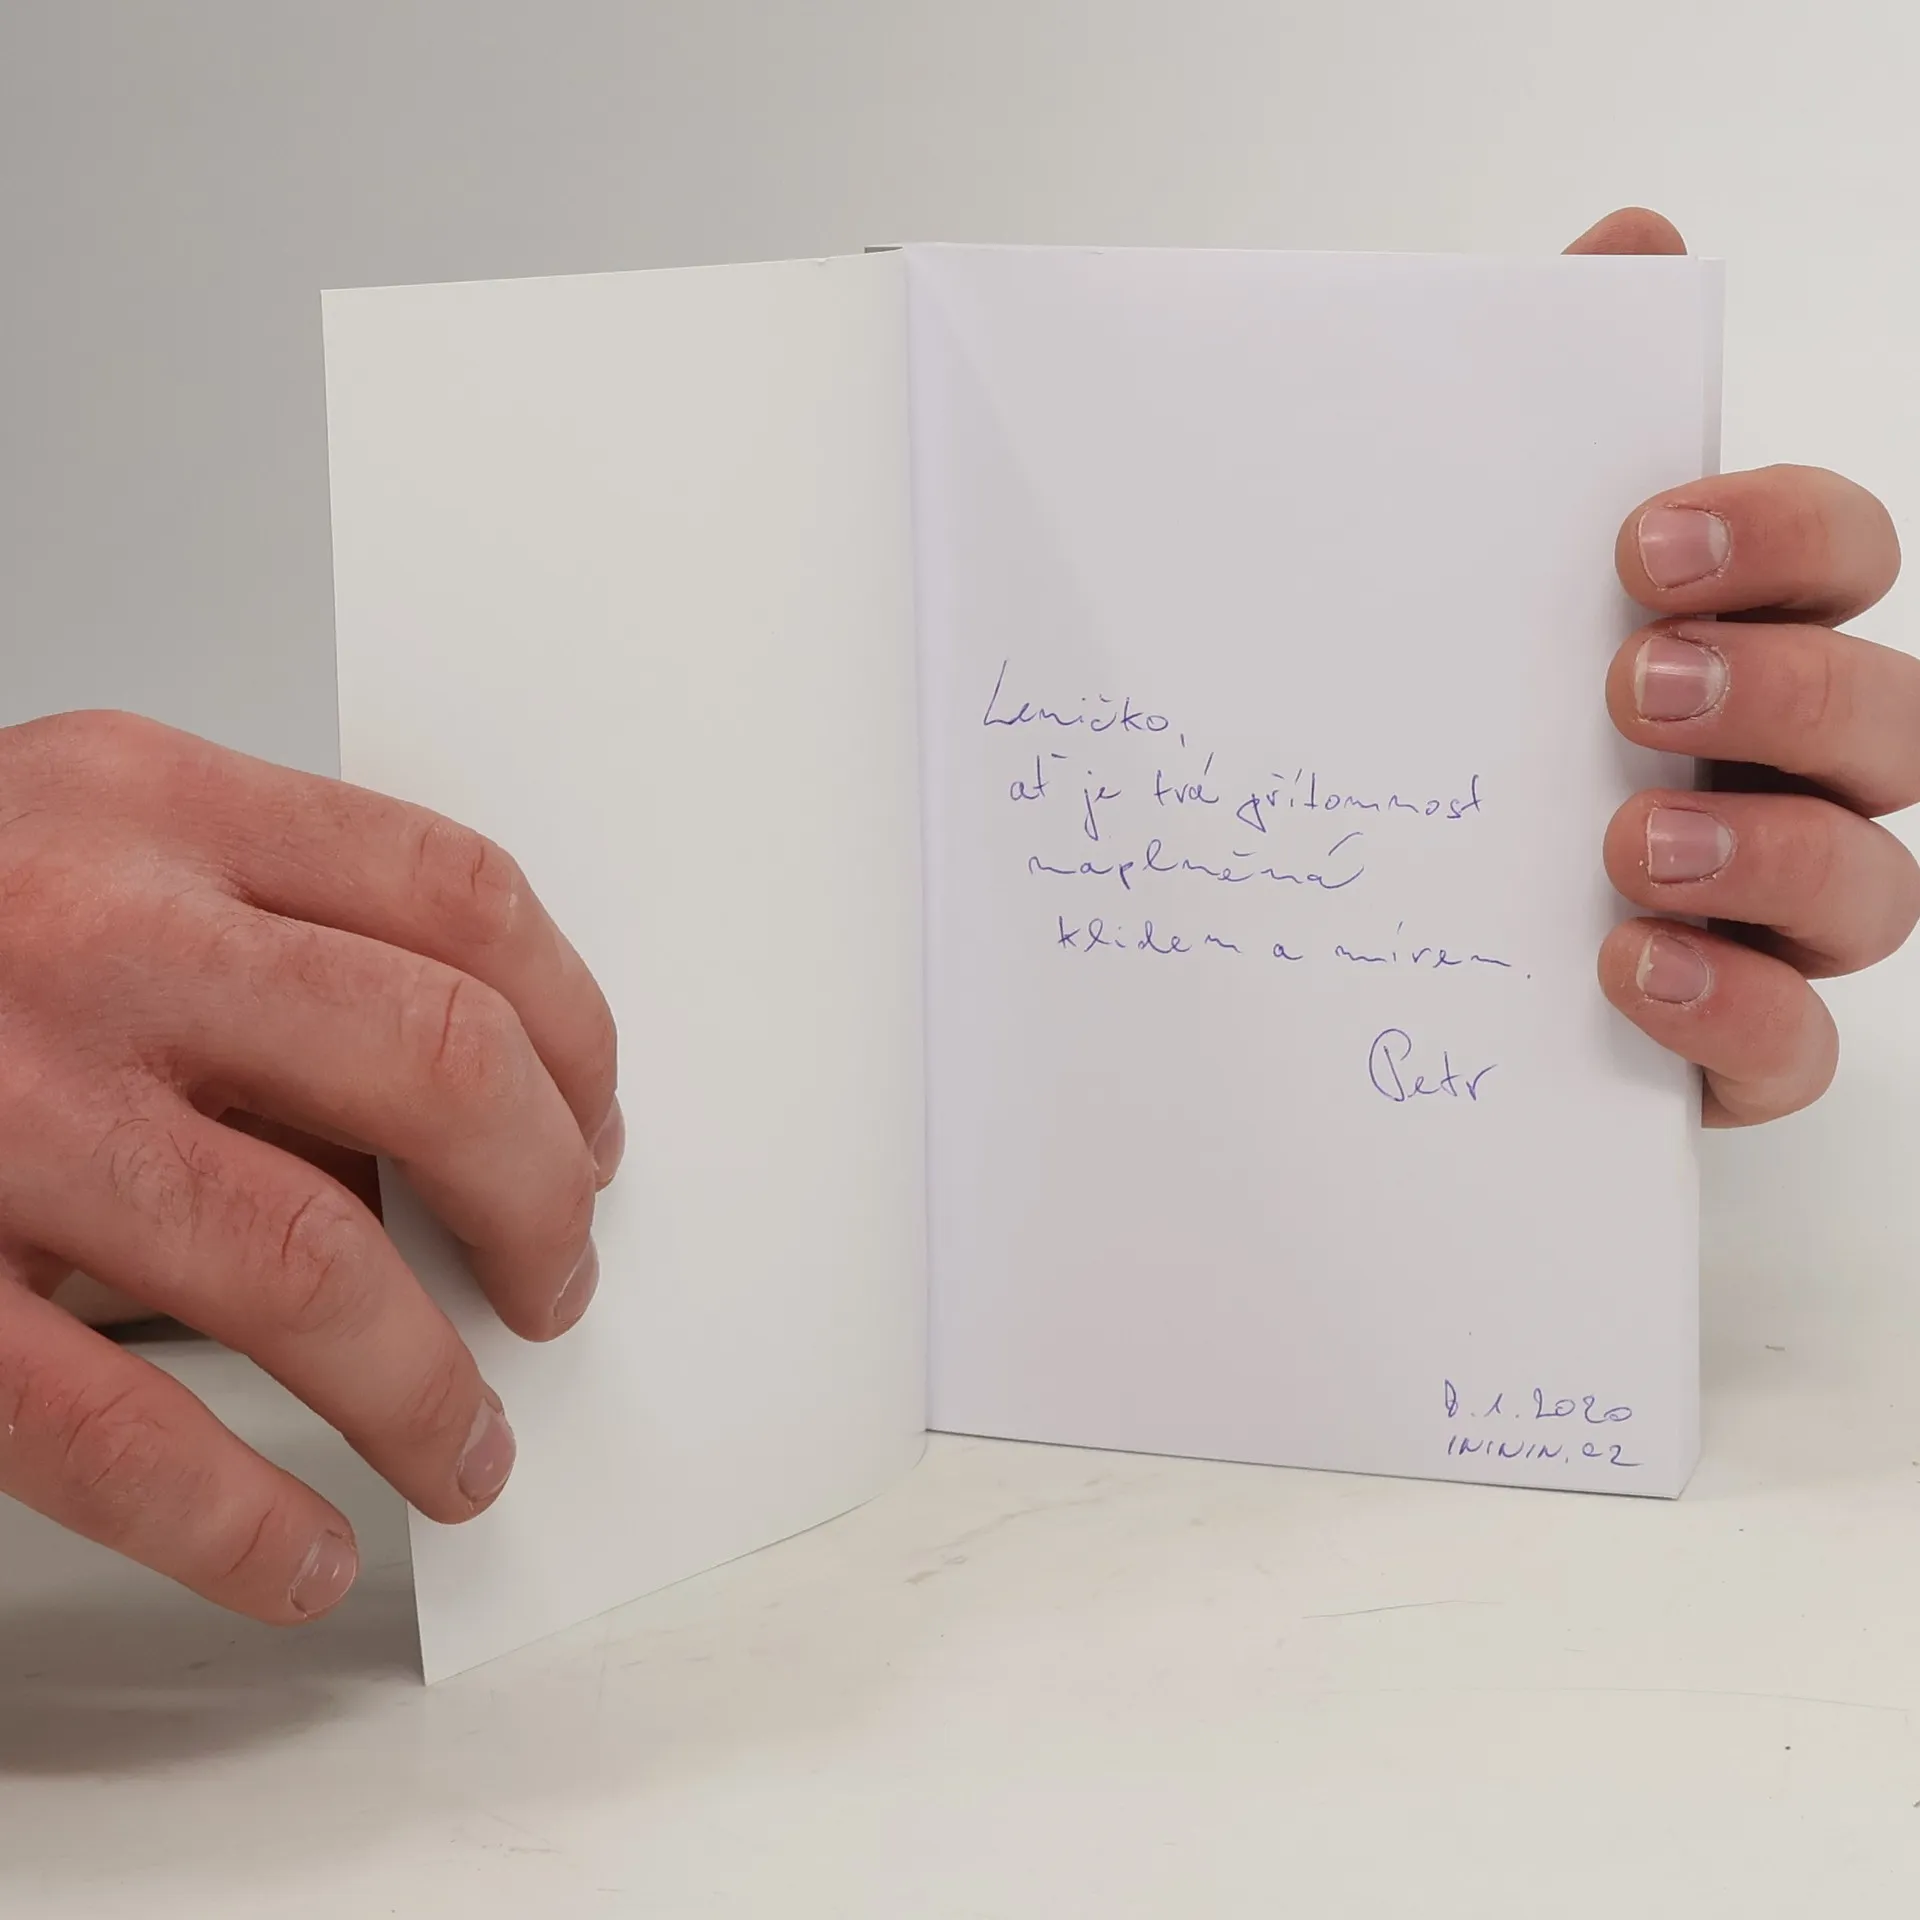 Leničko,
ať je tvá přítomnost
naplněná
klidem a mírem.
Petr
8.1.2020
INININ.CZ